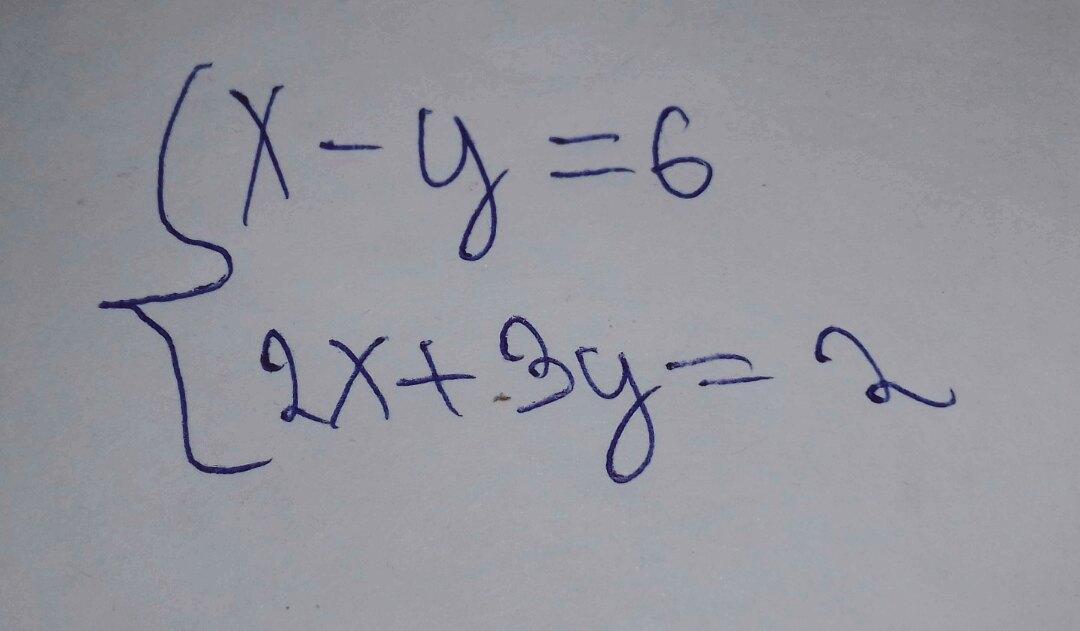 x - y = 6
2x + 3y = 2